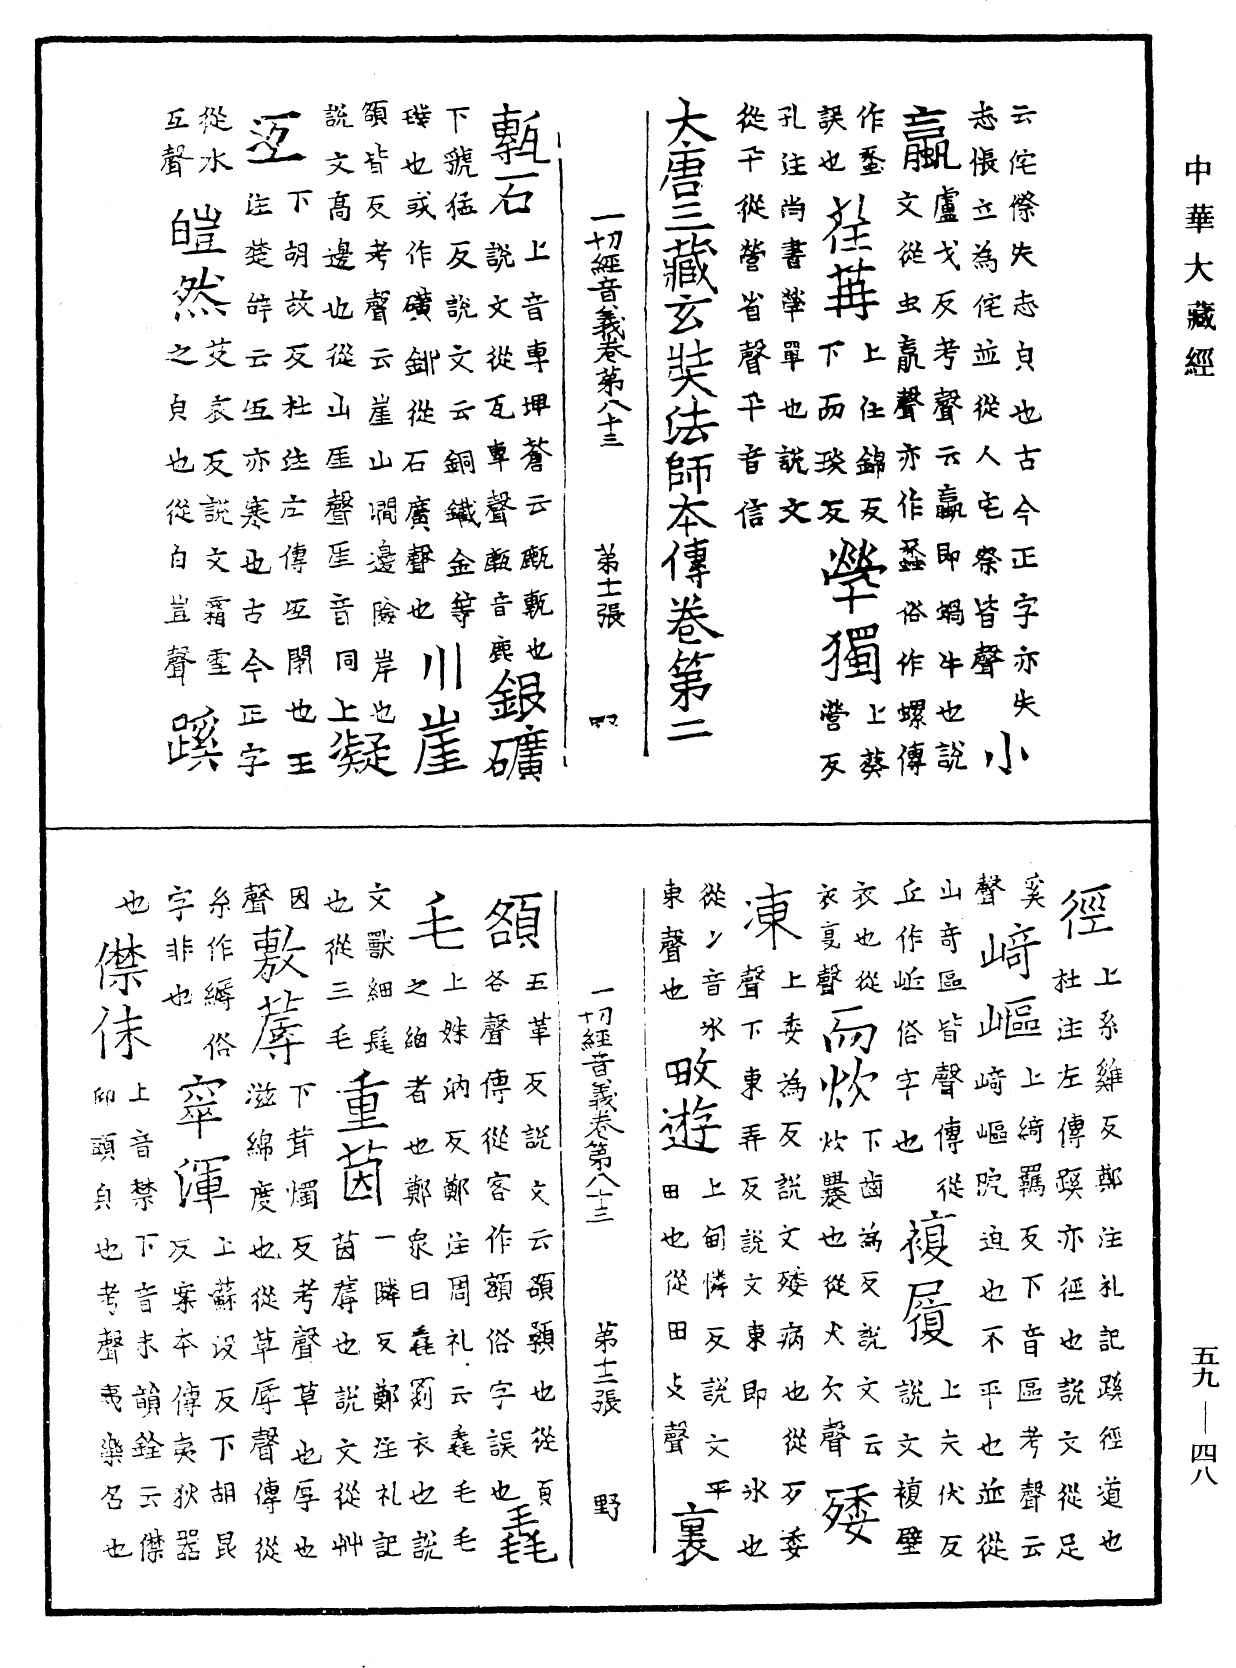 中華大藏經
云侘傺失志皃也古今正字亦失
志悵立為侘並從人宅祭皆聲
小
蠃
盧戈反考聲云蠃即蝸牛也說
文從虫𦝠聲亦作蠡俗作螺傳
作蚉
誤也
荏苒
上任錦反
下而琰反
煢獨
上葵
營反
孔注尚書煢單也說文
從卂從營省聲卂音信
大唐三藏玄奘法師本傳卷第二
一切經音義卷第八十三 第十一張 野
甎石
上音專埤蒼云甋甎也
說文從瓦專聲甋音鹿
銀礦
下虢猛反說文云銅鐵金等
璞也或作礦鉚從石廣聲也
川崖
額皆反考聲云崖山澗邊險岸也
說文高邊也從山厓聲厓音同上
凝
沍
下胡故反杜注左傳沍閉也王
注楚辭云沍亦寒也古今正字
從水
互聲
皚然
艾哀反說文霜雪
之皃也從白豈聲
蹊
徑
上系雞反鄭注礼記蹊徑道也
杜注左傳蹊亦徑也說文從足
奚
聲
﨑嶇
上綺羈反下音區考聲云
﨑嶇阸迫也不平也並從
山奇區皆聲傳從
丘作𡶴俗字也
複履
上夫伏反
說文複壁
衣也從
衣复聲
而炊
下齒為反說文云
炊爨也從火欠聲
矮
凍
上委為反說文矮病也從歹委
聲下東弄反說文東即冰也
從冫音氷
東聲也
畋遊
上甸憐反說文平
田也從田攴聲
裹
一切經音義卷第八十三 第十二張 野
額
五革反說文云頟顙也從頁
各聲傳從客作額俗字誤也
毳
毛
上姝汭反鄭注周礼云毳毛毛
之細者也鄭衆曰毳罽衣也說
文獸細毛
也從三毛
重茵
一隣反鄭注礼記
茵蓐也說文從艸
因
聲
敷蓐
下茸燭反考聲草也厚也
滋綿度也從草辱聲傳從
糸作縟俗
字非也
窣渾
上蘇没反下胡昆
反案本傳夷狄器
也
僸佅
上音禁下音末韻詮云僸
仰頭皃也考聲夷樂名也
五九—四八